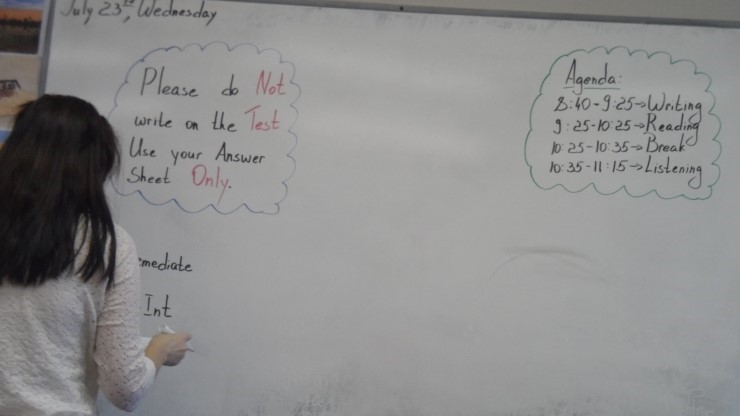 July 23rd, Wednesday
Please do Not
write on the Test
Use your Answer
Sheet Only.
Agenda:
8:40-9:25→Writing
9:25-10:25→Reading
10:25-10:35→Break
10:35-11:15→Listening
mediate
Int